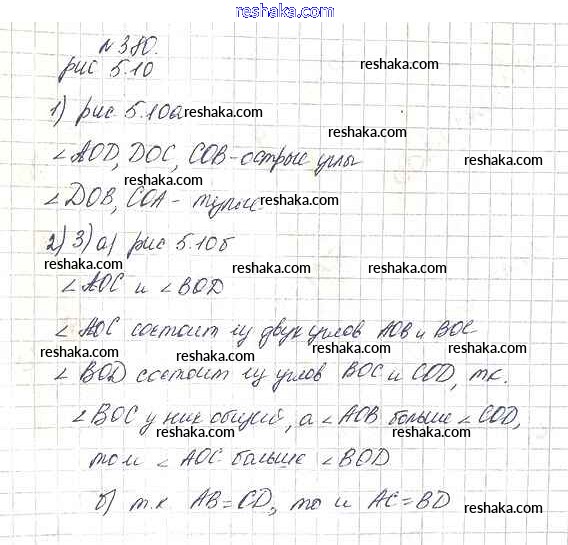 www.reshaka.com
№380.
рис 5.10
reshaka.com
1) рис 5.10а reshaka.com
reshaka.com
∠AOD, DOC, COB - острые углы
reshaka.com
reshaka.com
∠DOB, COA - тупые
2) 3) а) рис 5.10б
reshaka.com reshaka.com reshaka.com
∠AOC и ∠BOD
reshaka.com
∠AOC состоит из двух углов AOB и BOC
reshaka.com reshaka.com reshaka.com
∠BOD состоит из углов BOC и COD, т.к.
∠BOC у них общий, а ∠AOB больше ∠COD,
reshaka.com reshaka.com
то и ∠AOC больше ∠BOD
reshaka.com
б) т.к AB=CD, то и AC=BD
reshaka.com
reshaka.com